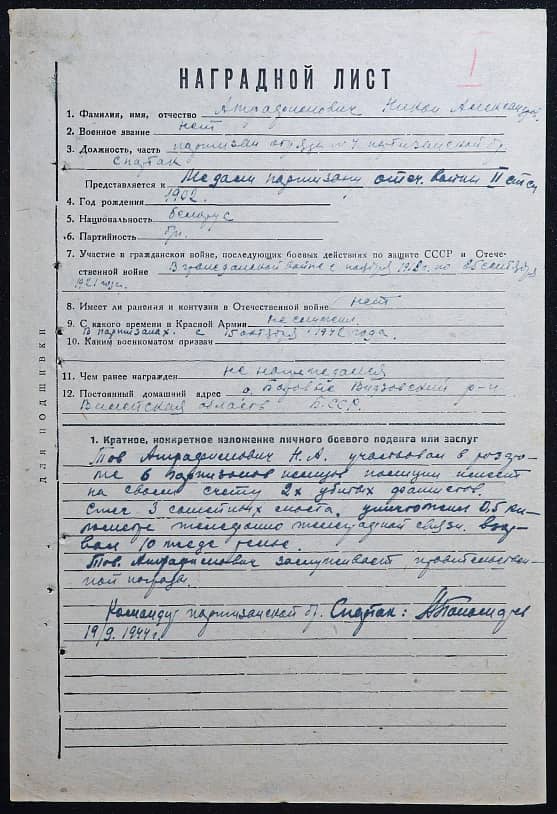 I
НАГРАДНОЙ ЛИСТ
1. Фамилия, имя, отчество
2. Военное звание нет
3. Должность, часть партизан отряда № партизанской бр.
Спартак
Представляется к Медали партизану отеч. войны II степ
4. Год рождения 1902.
5. Национальность белорус
6. Партийность бп.
7. Участие в гражданской войне, последующих боевых действиях по защите СССР и Отече-
ственной войне В гражданской войне с по 25 сентября
1921 года.
8. Имеет ли ранения и контузии в Отечественной войне нет
9. С какого времени в Красной Армии не служил.
В партизанах. с 15 октября 1942 года.
10. Каким военкоматом призван
11. Чем ранее награжден не награждался
12. Постоянный домашний адрес Видзовский р-н
Вилейская область БССР.
ДЛЯ ПОДШИВКИ
1. Краткое, конкретное изложение личного боевого подвига или заслуг
Тов. Н.А. участвовал в разгро-
ме 6 гарнизонов немцев полиции имеет
на своем счету 2х убитых фашистов.
Сжег 3 моста, уничтожил 0,5 ки-
лометра связи. взор-
вал 10
Тов. заслуживает правительствен-
ной награды.
Командир партизанской бр. Спартак:
19/9. 1944 г.